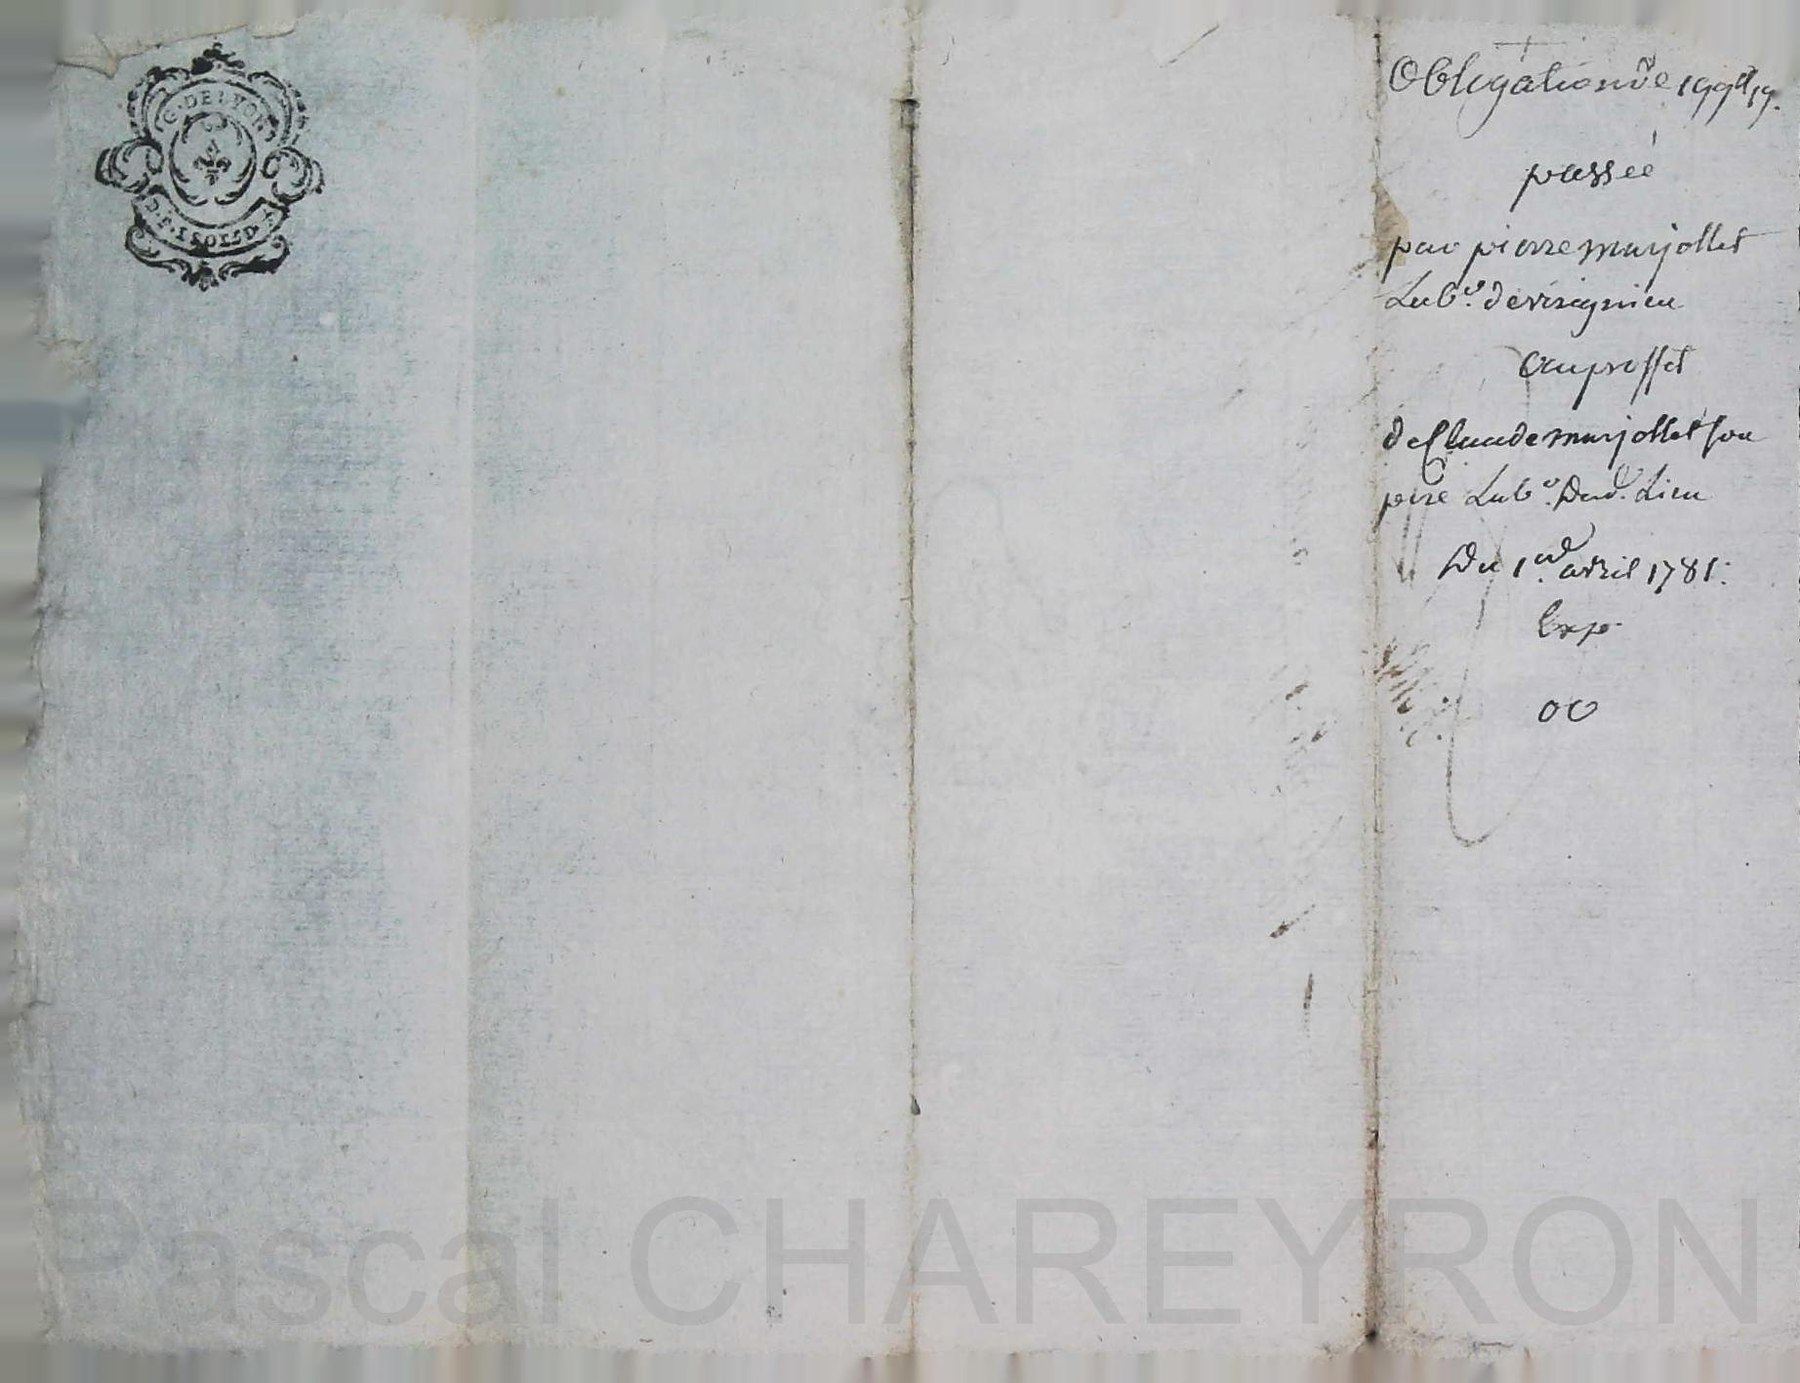 G. DE LYON
D.F. 1 SOL 5 D.
Obligation de 199lt 19.
passée
par pierre marjollet
Lab.r de visignieu
au proffet
de Claude marjollet son
pere Lab.r Dud. Lieu
Du 1er avril 1781.
Exp.
Pascal CHAREYRON